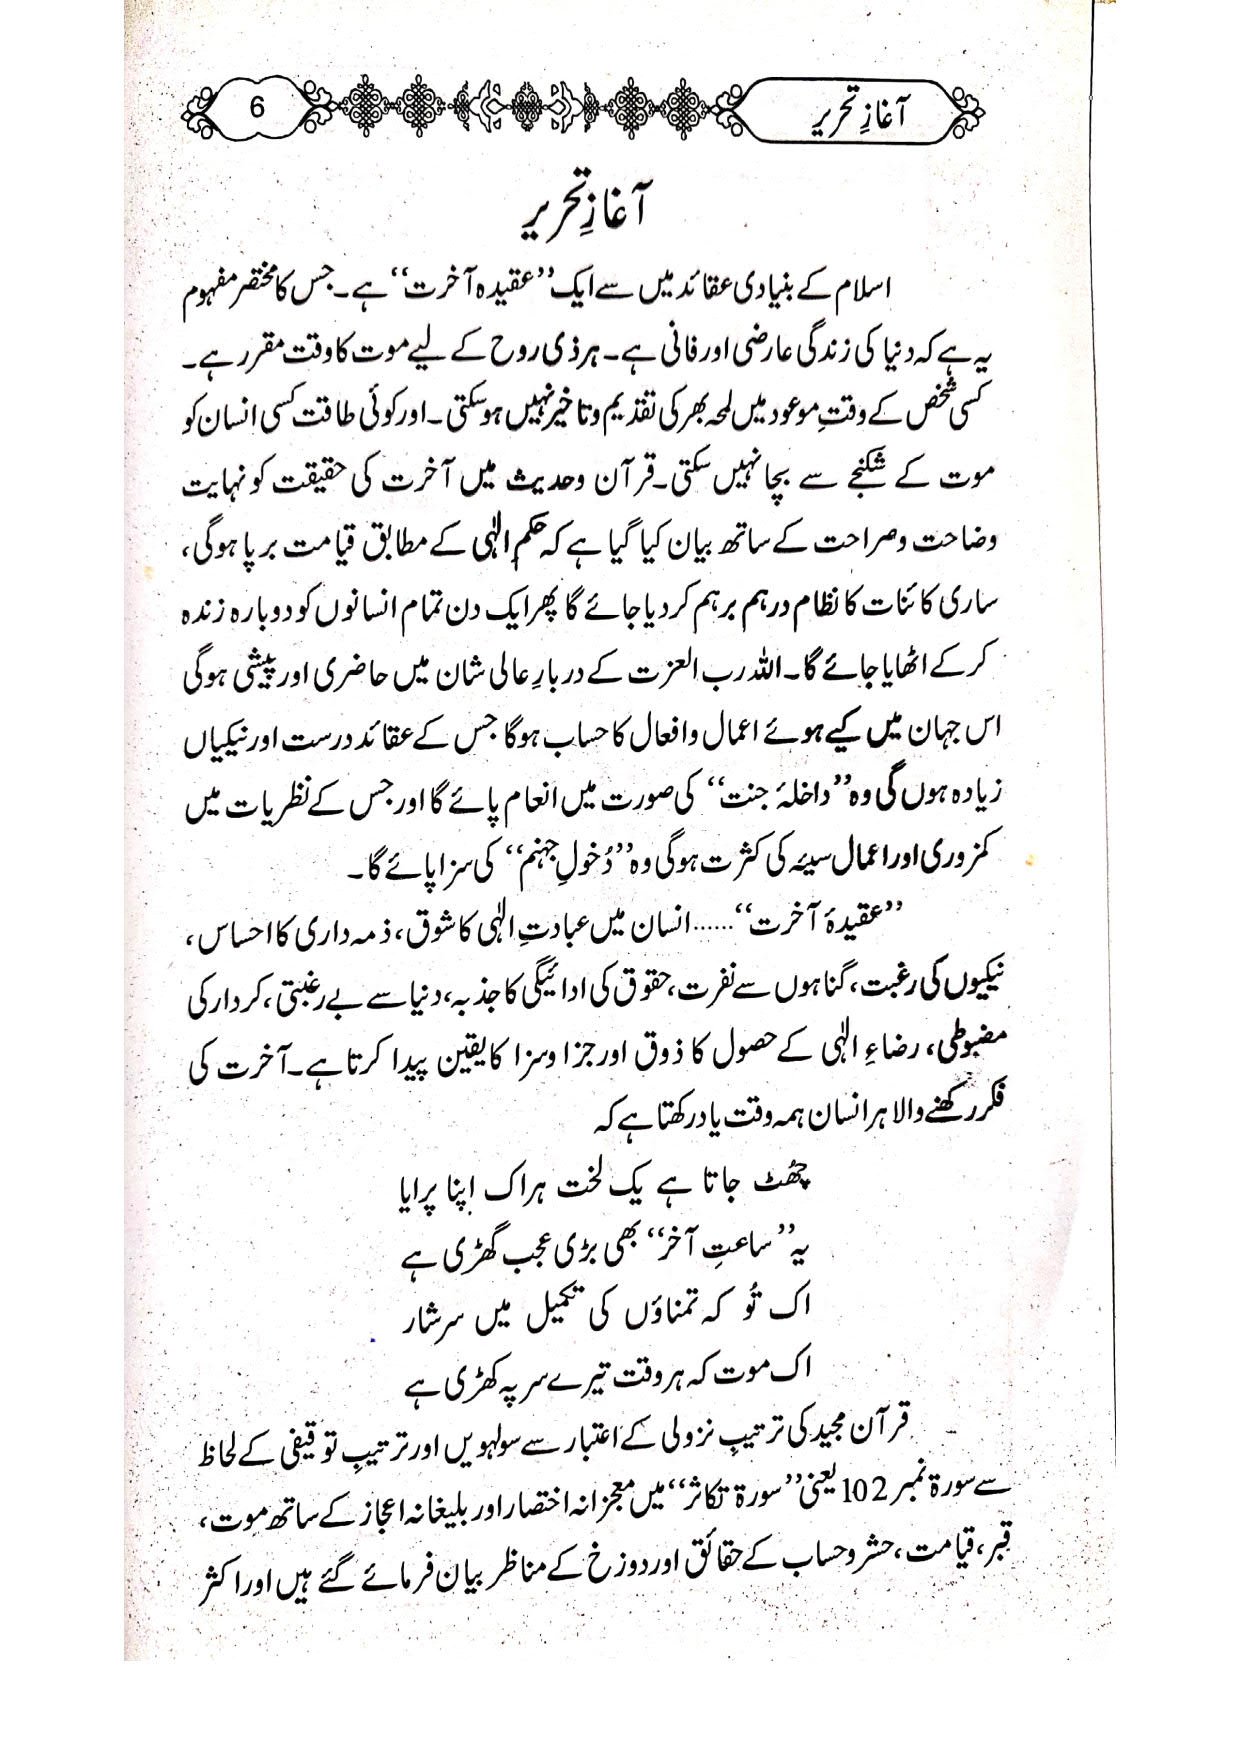 آغازِ تحریر
6
آغازِ تحریر
اسلام کے بنیادی عقائد میں سے ایک ’’عقیدہ آخرت‘‘ ہے۔ جس کا مختصر مفہوم
یہ ہے کہ دنیا کی زندگی عارضی اور فانی ہے۔ ہر ذی روح کے لیے موت کا وقت مقرر ہے۔
کسی شخص کے وقتِ موعود میں لمحہ بھر کی تقدیم و تاخیر نہیں ہو سکتی۔ اور کوئی طاقت کسی انسان کو
موت کے شکنجے سے بچا نہیں سکتی۔ قرآن وحدیث میں آخرت کی حقیقت کو نہایت
وضاحت وصراحت کے ساتھ بیان کیا گیا ہے کہ حکم الٰہی کے مطابق قیامت برپا ہوگی،
ساری کائنات کا نظام درہم برہم کر دیا جائے گا پھر ایک دن تمام انسانوں کو دوبارہ زندہ
کر کے اٹھایا جائے گا۔ اللہ رب العزت کے دربارِ عالی شان میں حاضری اور پیشی ہوگی
اس جہان میں کیے ہوئے اعمال وافعال کا حساب ہوگا جس کے عقائد درست اور نیکیاں
زیادہ ہوں گی وہ ’’داخلۂ جنت‘‘ کی صورت میں انعام پائے گا اور جس کے نظریات میں
کمزوری اور اعمال سیئہ کی کثرت ہوگی وہ ’’دُخولِ جہنم‘‘ کی سزا پائے گا۔
’’عقیدۂ آخرت‘‘...... انسان میں عبادتِ الٰہی کا شوق، ذمہ داری کا احساس،
نیکیوں کی رغبت، گناہوں سے نفرت، حقوق کی ادائیگی کا جذبہ، دنیا سے بے رغبتی، کردار کی
مضبوطی، رضاءِ الٰہی کے حصول کا ذوق اور جزا وسزا کا یقین پیدا کرتا ہے۔ آخرت کی
فکر رکھنے والا ہر انسان ہمہ وقت یاد رکھتا ہے کہ
چُھٹ جاتا ہے یک لخت ہر اک اپنا پرایا
یہ ’’ساعتِ آخر‘‘ بھی بڑی عجب گھڑی ہے
اک تُو کہ تمناؤں کی تکمیل میں سرشار
اک موت کہ ہر وقت تیرے سر پہ کھڑی ہے
قرآن مجید کی ترتیبِ نزولی کے اعتبار سے سولہویں اور ترتیبِ توقیفی کے لحاظ
سے سورۃ نمبر 102 یعنی ’’سورۃ تکاثر‘‘ میں معجزانہ اختصار اور بلیغانہ اعجاز کے ساتھ موت،
قبر، قیامت، حشر وحساب کے حقائق اور دوزخ کے مناظر بیان فرمائے گئے ہیں اور اکثر